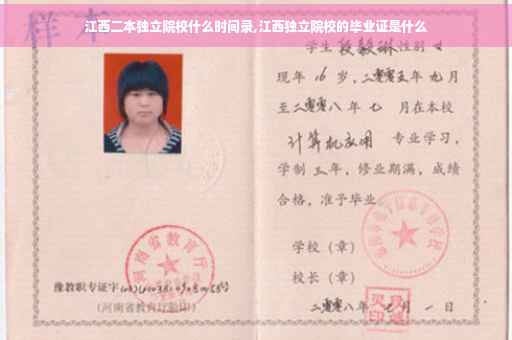 江西二本独立院校什么时间录,江西独立院校的毕业证是什么
样本
学生 段毅琳 性别 女
现年 16 岁，二零零五年 九月
至二零零八年 七 月在本校
计算机应用 专业学习，
学制 三 年，修业期满，成绩
合格，准予毕业
学校（章）
校长（章）
二零零八年 七 月 一 日
河南省教育厅
豫教职专证字
（河南省教育厅验印）